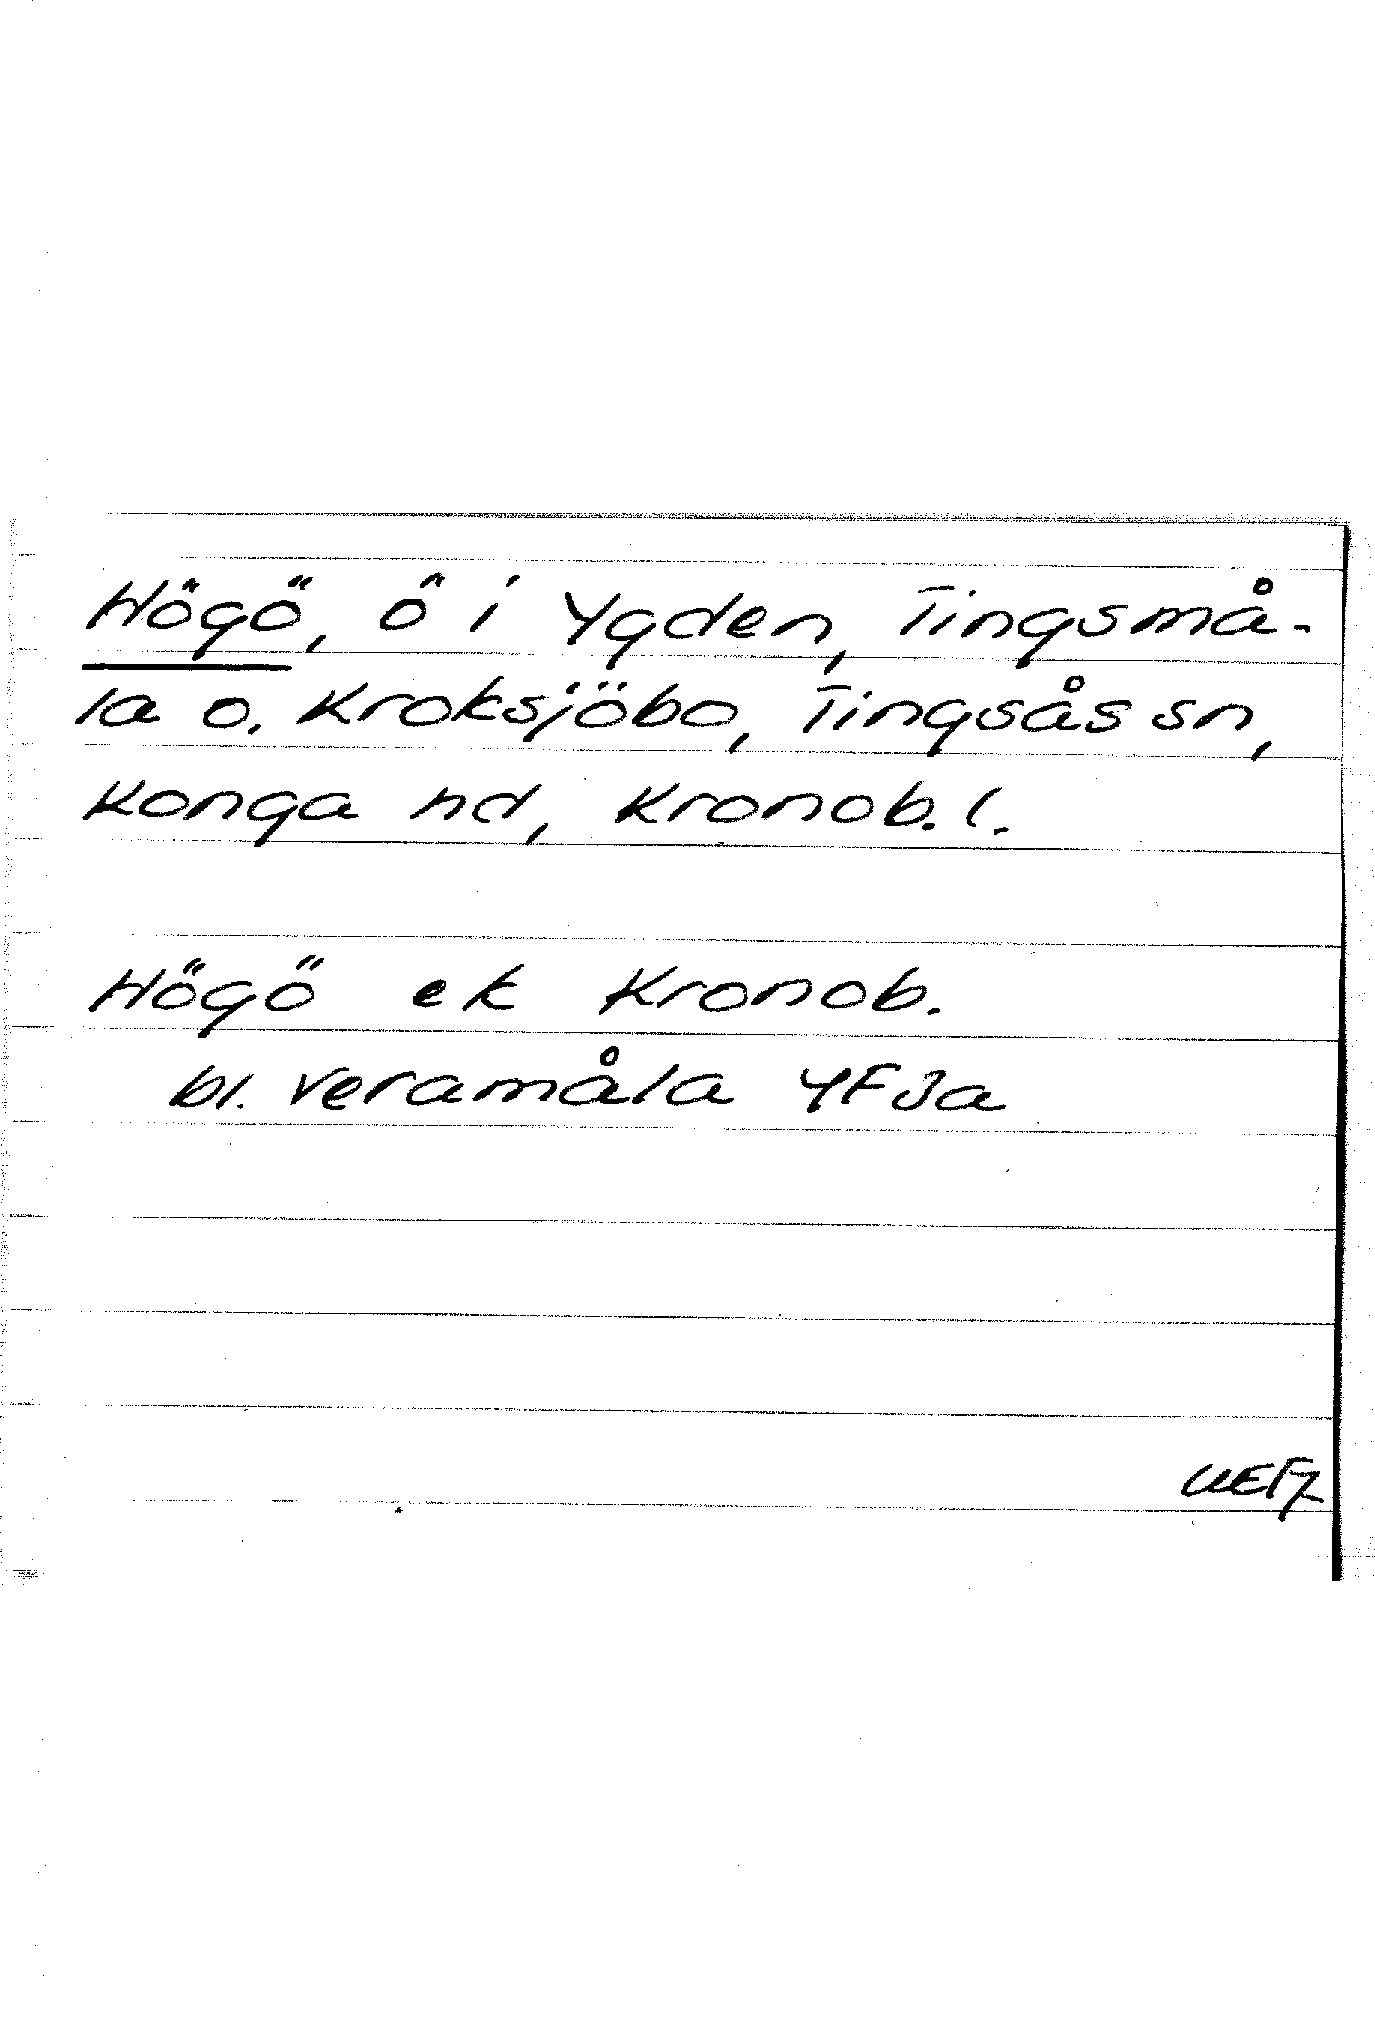 Högö, ö i Ygden, Tingsmå-
la o. Kroksjöbo, Tingsås sn,
Konga hd, Kronob. l.
Högö ek Kronob.
bl. Veramåla 4F3a